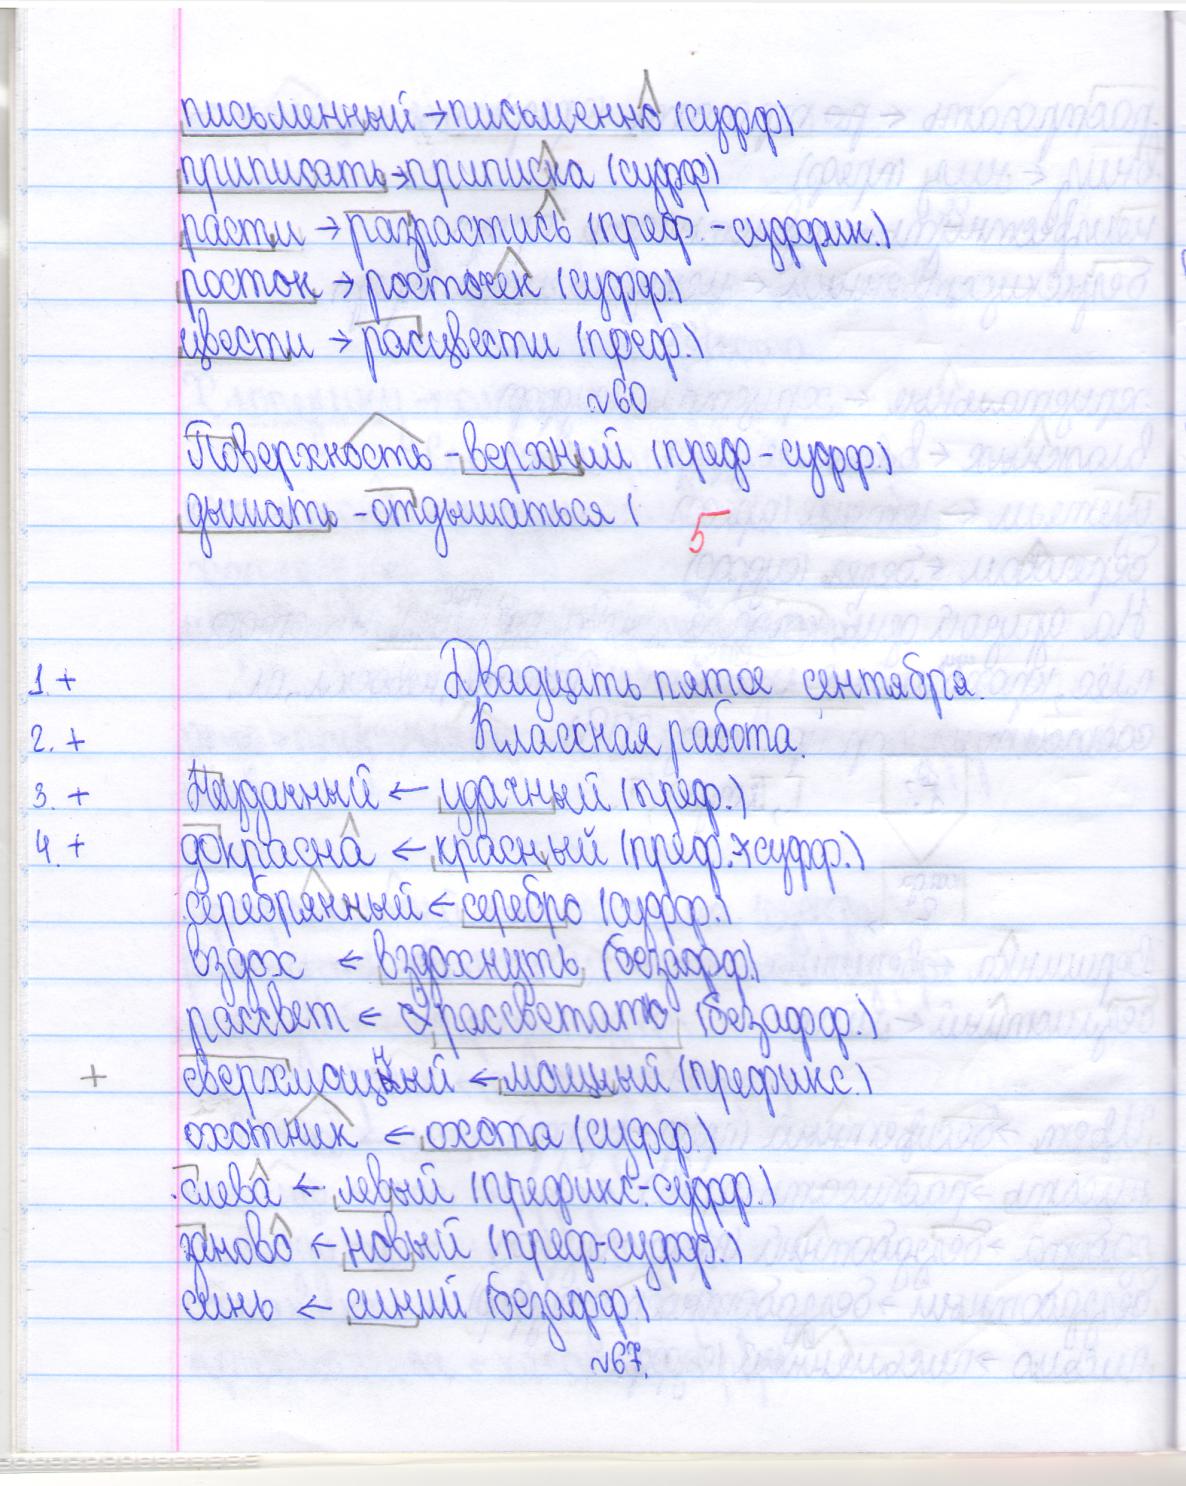 письменный → письменно (суфф)
приписать → приписка (суфф)
расти → разрастись (преф. - суффик.)
росток → росточек (суфф.)
цвести → расцвести (преф.)
№60
Поверхность - верхний (преф - суфф.)
дышать - отдышаться (
5
1. + Двадцать пятое сентября.
2. + Классная работа.
3. + Неудачный ← удачный (преф.)
4. + докрасна ← красный (преф. + суфф.)
серебрянный ← серебро (суфф.)
вздох ← вздохнуть (безафф)
рассвет ← рассветать (безафф.)
+ сверхмощный ← мощный (префикс.)
охотник ← охота (суфф.)
слева ← левый (префикс-суфф.)
заново ← новый (преф-суфф.)
синь ← синий (безафф.)
№67.